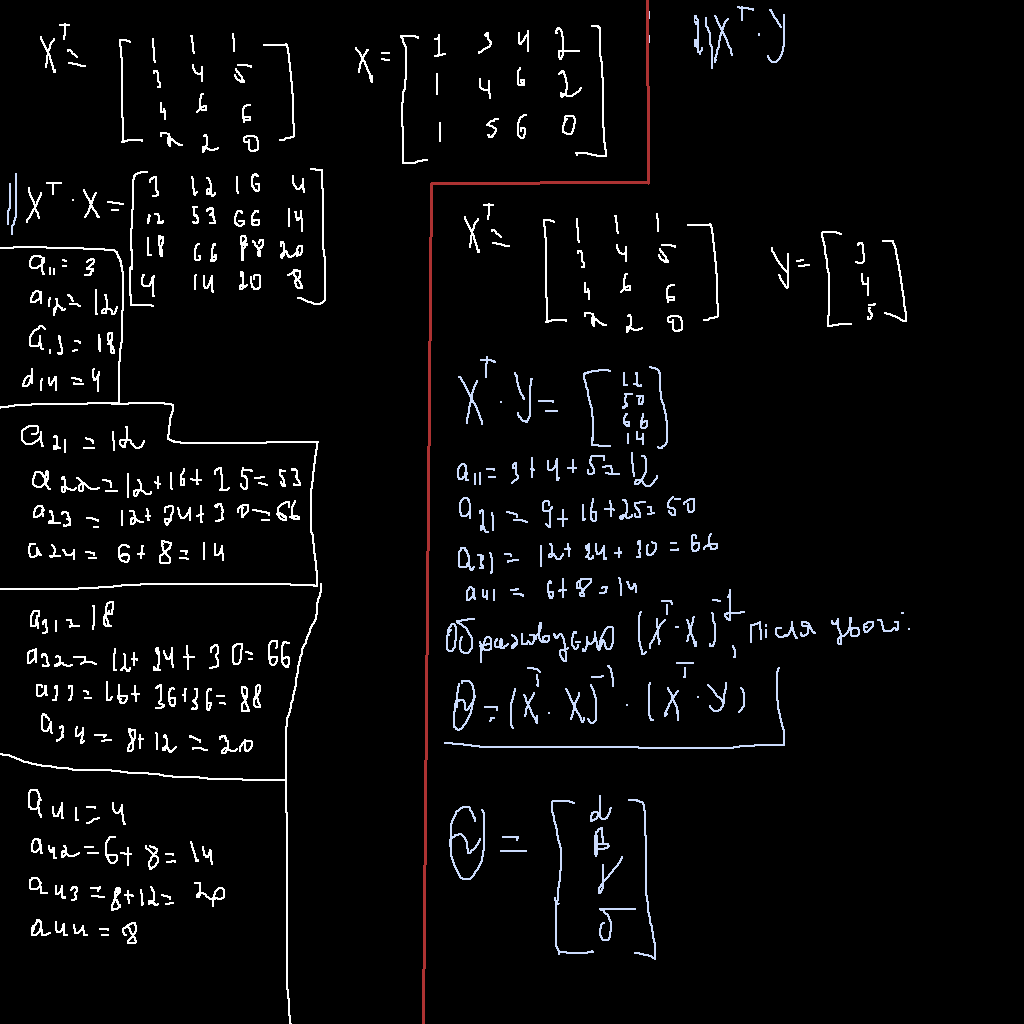 X^T = [1 1 1
3 4 5
4 6 6
2 2 0]
X = [1 3 4 2
1 4 6 2
1 5 6 0]
1) X^T · X = [3 12 16 4
12 53 66 14
18 66 98 20
4 14 20 8]
a11 = 3
a12 = 12
a13 = 18
a14 = 4
a21 = 12
a22 = 12+16+25=53
a23 = 12+24+30=66
a24 = 6+8=14
a31 = 18
a32 = 12+24+30=66
a33 = 16+36+36=88
a34 = 8+12=20
a41 = 4
a42 = 6+8=14
a43 = 8+12= 20
a44 = 8
2) X^T · y
X^T = [1 1 1
3 4 5
4 6 6
2 2 0]
y = [3
4
5]
X^T · y = [12
50
66
14]
a11 = 3+4+5=12
a21 = 9+16+25=50
a31 = 12+24+30=66
a41 = 6+8=14
(X^T · X)^-1, після
θ = (X^T · X)^-1 · (X^T · y)
θ = [α
β
γ
δ]